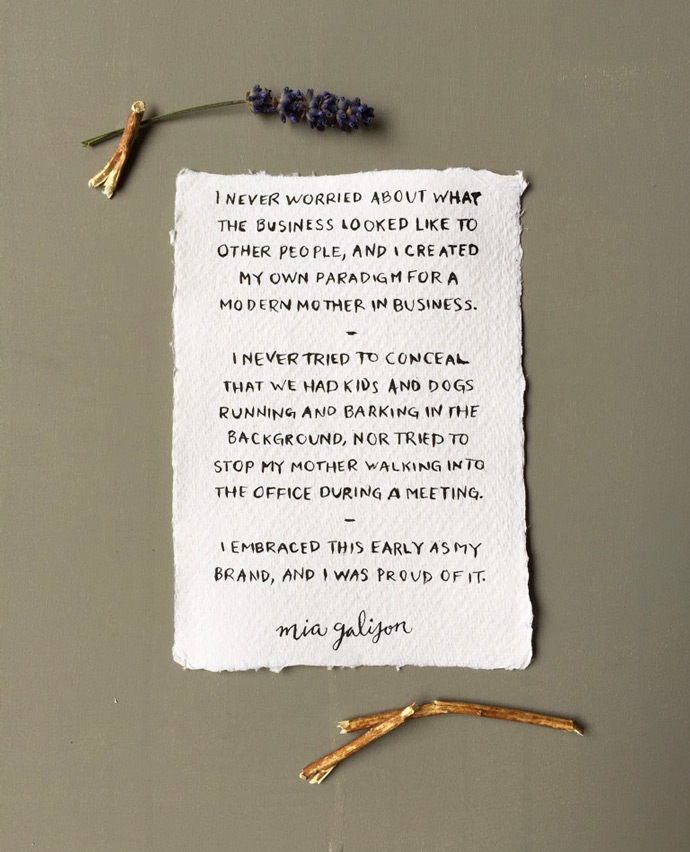 I NEVER WORRIED ABOUT WHAT
THE BUSINESS LOOKED LIKE TO
OTHER PEOPLE, AND I CREATED
MY OWN PARADIGM FOR A
MODERN MOTHER IN BUSINESS.
-
I NEVER TRIED TO CONCEAL
THAT WE HAD KIDS AND DOGS
RUNNING AND BARKING IN THE
BACKGROUND, NOR TRIED TO
STOP MY MOTHER WALKING INTO
THE OFFICE DURING A MEETING.
-
I EMBRACED THIS EARLY AS MY
BRAND, AND I WAS PROUD OF IT.
mia galison